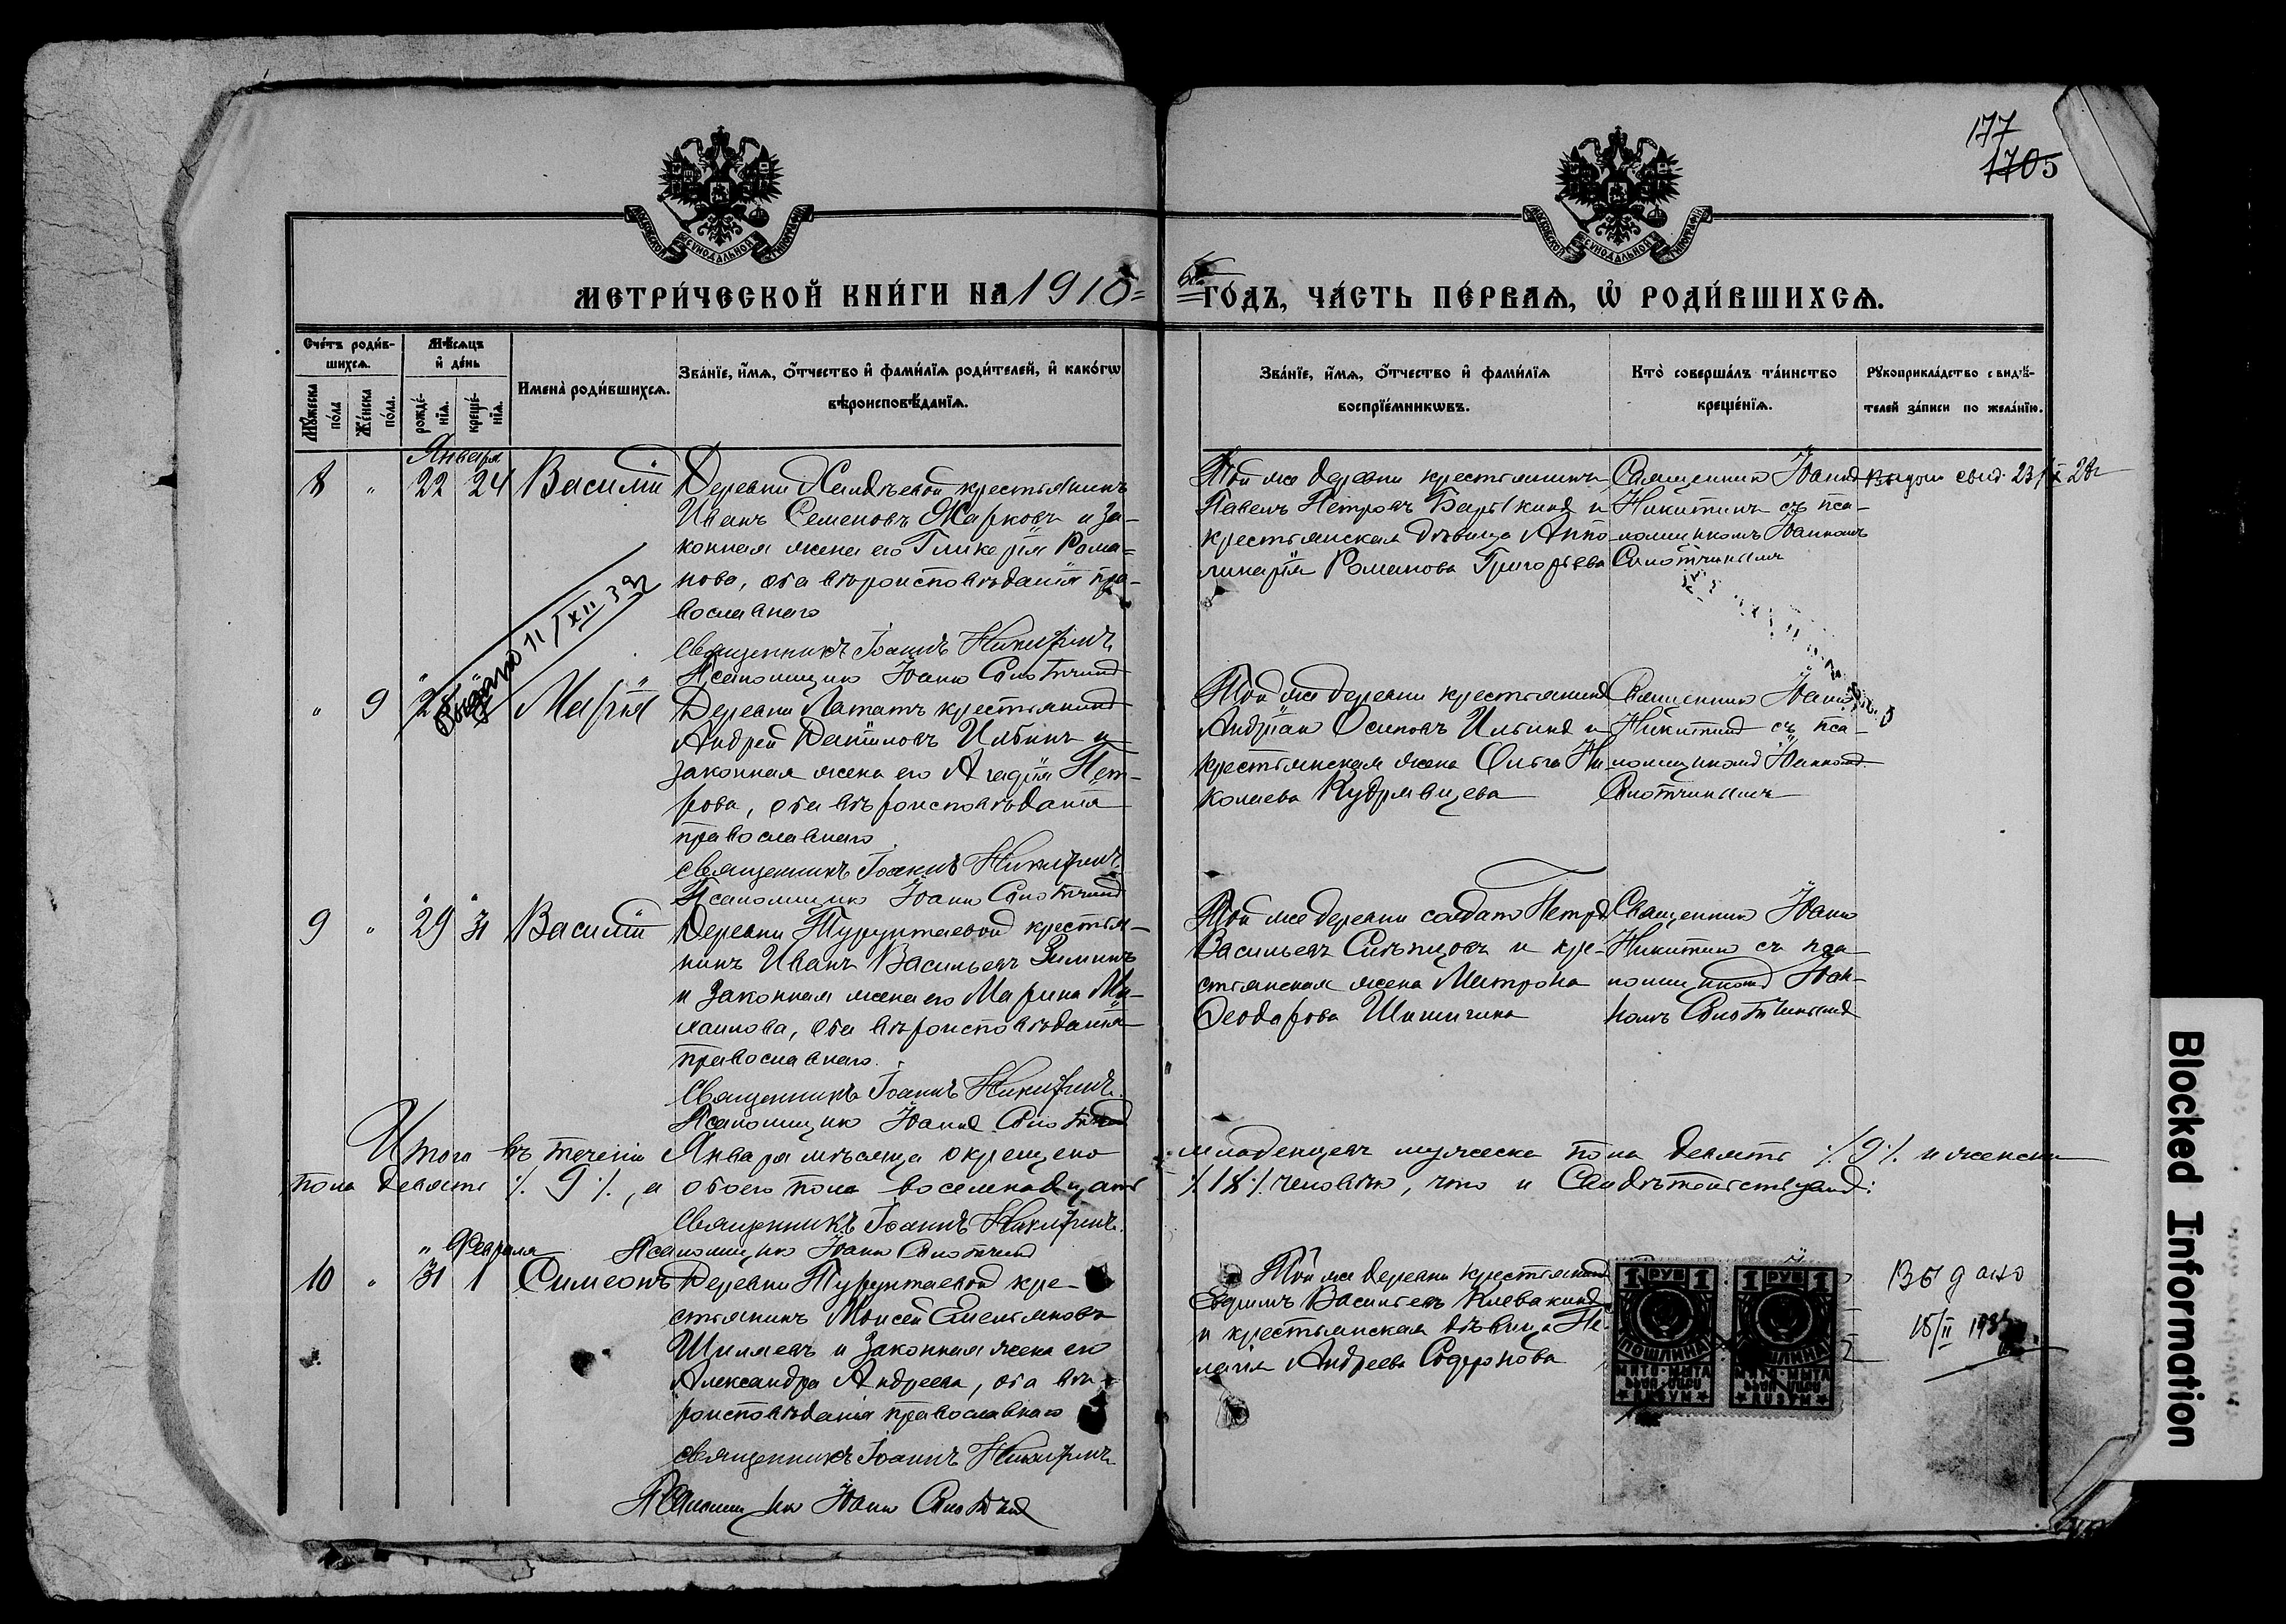 177
1705
МОСКОВСКОЙ СѴНОДАЛЬНОЙ ТИПОГРАФІИ
МОСКОВСКОЙ СѴНОДАЛЬНОЙ ТИПОГРАФІИ
МЕТРИ́ЧЕСКОЙ КНИ́ГИ НА 1910=
ГО́ДЪ, ЧА́СТЬ ПЕ́РВАѦ, Ѡ҆ РОДИ́ВШИХСѦ.
Сче́тъ роди́в-
шихсѧ.
Мꙋ́жеска по́ла
Же́нска по́ла.
Мѣ́сѧцъ
и҆ де́нь
рожде́-
нїѧ.
креще́-
нїѧ.
Имена̀ роди́вшихсѧ.
Зва́нїе, и҆́мѧ, ѻ҆́тчество и҆ фами́лїѧ роди́телей, и҆ како́гѡ
вѣроисповѣ́данїѧ.
Зва́нїе, и҆́мѧ, ѻ҆́тчество и҆ фами́лїѧ
воспрїе́мникѡвъ.
Кто̀ соверша́лъ та́инство
креще́нїѧ.
Рꙋкоприкла́дство свидѣ́-
телей за́писи по жела́нїю.
Января
8 " 22 24 Василій
Деревни крестьянинъ
Иванъ Семеновъ Жарковъ и за-
конная жена его Гликерія Рома=
нова, оба вѣроисповѣданія пра-
вославнаго
Священникъ Іоаннъ Никитинъ
Псаломщикъ Іоаннъ
Той же деревни крестьянинъ
Павелъ Петровъ и
крестьянская дѣвица Аппо-
линарія Романова Григорьева
Священникъ Іоаннъ
Никитинъ съ пса-
ломщикомъ Іоанномъ
Выдано 11/XII 39г
" 9 Марія
Деревни Лататъ крестьянинъ
Андрей Даниловъ Ильинъ и
законная жена его Агафія Пет-
рова, оба вѣроисповѣданія
православнаго
Священникъ Іоаннъ Никитинъ
Псаломщикъ Іоаннъ
Той же деревни крестьянинъ
Андріанъ Осиповъ Ильинъ и
крестьянская жена Ольга Ни
колаева Кудрявцева
Священникъ Іоаннъ
Никитинъ съ пса-
ломщикомъ Іоанномъ
9 " 29 31 Василій
Деревни Турунтаевой крестья-
нинъ Иванъ Васильевъ Зиминъ
и законная жена его Марина Ми-
хаилова, оба вѣроисповѣданія
православнаго.
Священникъ Іоаннъ Никитинъ.
Псаломщикъ Іоаннъ
Той же деревни солдатъ Петръ
Васильевъ Слѣпцовъ и кре-
стьянская жена Матрона
Ѳеодорова Шишигина
Священникъ Іоаннъ
Никитинъ съ пса
ломщикомъ Іоан-
номъ
Итого въ теченіи Января мѣсяца окрещено
младенцевъ мужеска пола девять ٪ 9 ٪ и женска
пола девять ٪ 9 ٪, а обоего пола восемнадцать
٪ 18 ٪ человѣкъ, что и свидѣтельствуемъ:
Священникъ Іоаннъ Никитинъ.
Псаломщикъ Іоаннъ
" Февраля
10 " 31 1 Симеонъ
Деревни Турунтаевой кре-
стьянинъ Моисей Емельяновъ
Шиляевъ и законная жена его
Александра Андреева, оба вѣ-
роисповѣданія православнаго
Священникъ Іоаннъ Никитинъ
Псаломщикъ Іоаннъ
Той же деревни крестьянинъ
Евдокимъ Васильевъ Клевакинъ
и крестьянская дѣвица Пе-
лагія Андреева
1 РУБ 1
ПОШЛИНА
1 РУБ 1
ПОШЛИНА
Выдано
Blocked Information